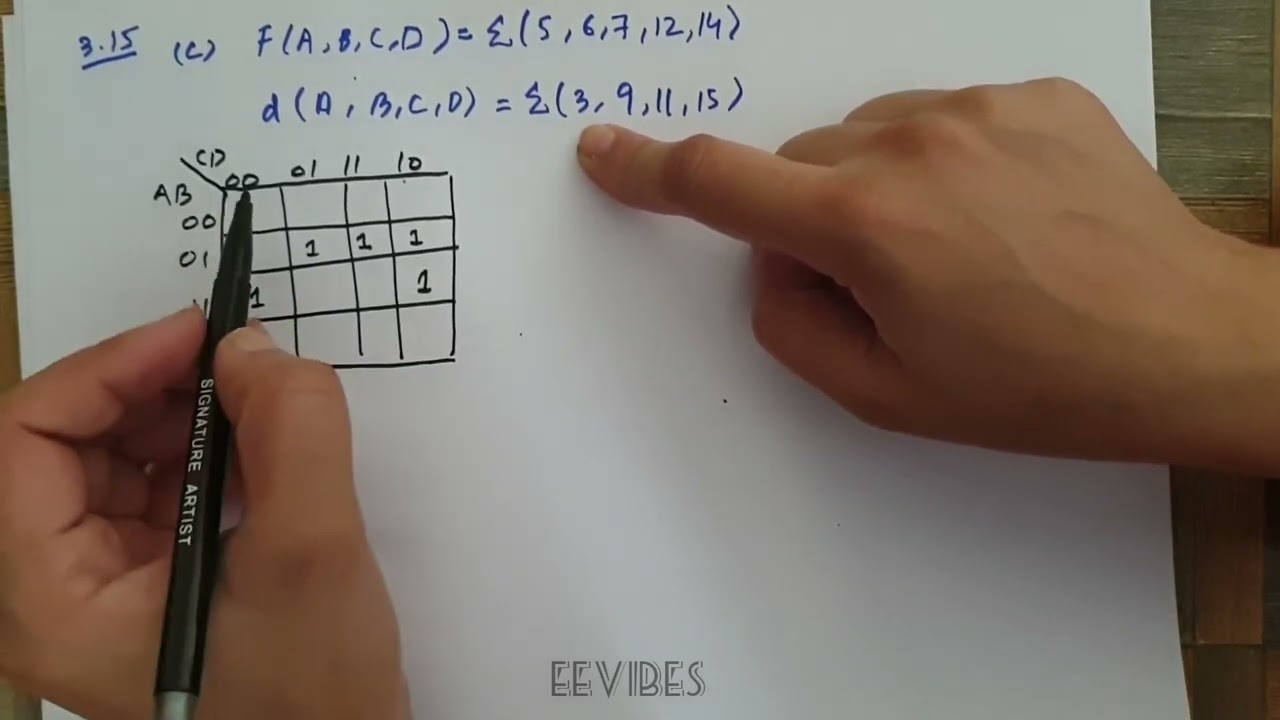 3.15 (C) F(A,B,C,D)= Σ(5,6,7,12,14)
d(A,B,C,D) = Σ(3,9,11,15)
CD
00 01 11 10
AB
00
01 1 1 1
1 1
SIGNATURE ARTIST
EEVIBES